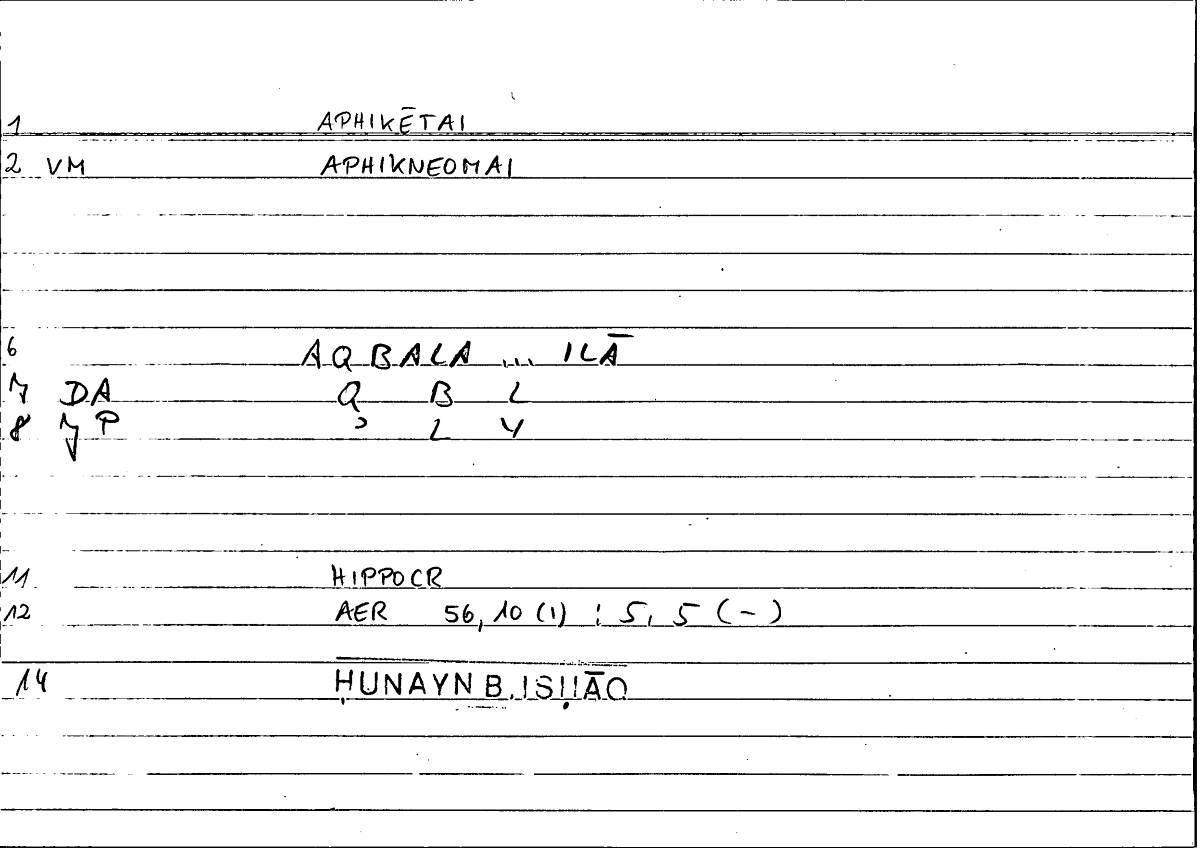 1 APHIKĒTAI
2 VM APHIKNEOMAI
6 AQBALA ... ILĀ
7 DA Q B L
8 JP ʾ L Y
11 HIPPOCR
12 AER 56,10 (1) : 5,5 (-)
14 ḤUNAYN B. ISḤĀQ